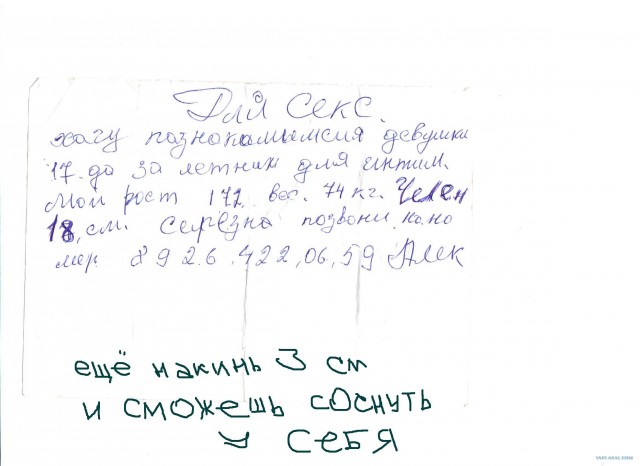 Для секс.
хачу познокамымсия девушки
17. до 30 летних для интим.
Мой рост 172 вес. 74 кг. Челен
18, см. Серёзна позвони. на. но
мер. 8 9 2 6. 4 2 2, 06, 59 Алек
ещё накинь 3 см
и сможешь соснуть
у себя
YAPLAKAL.COM